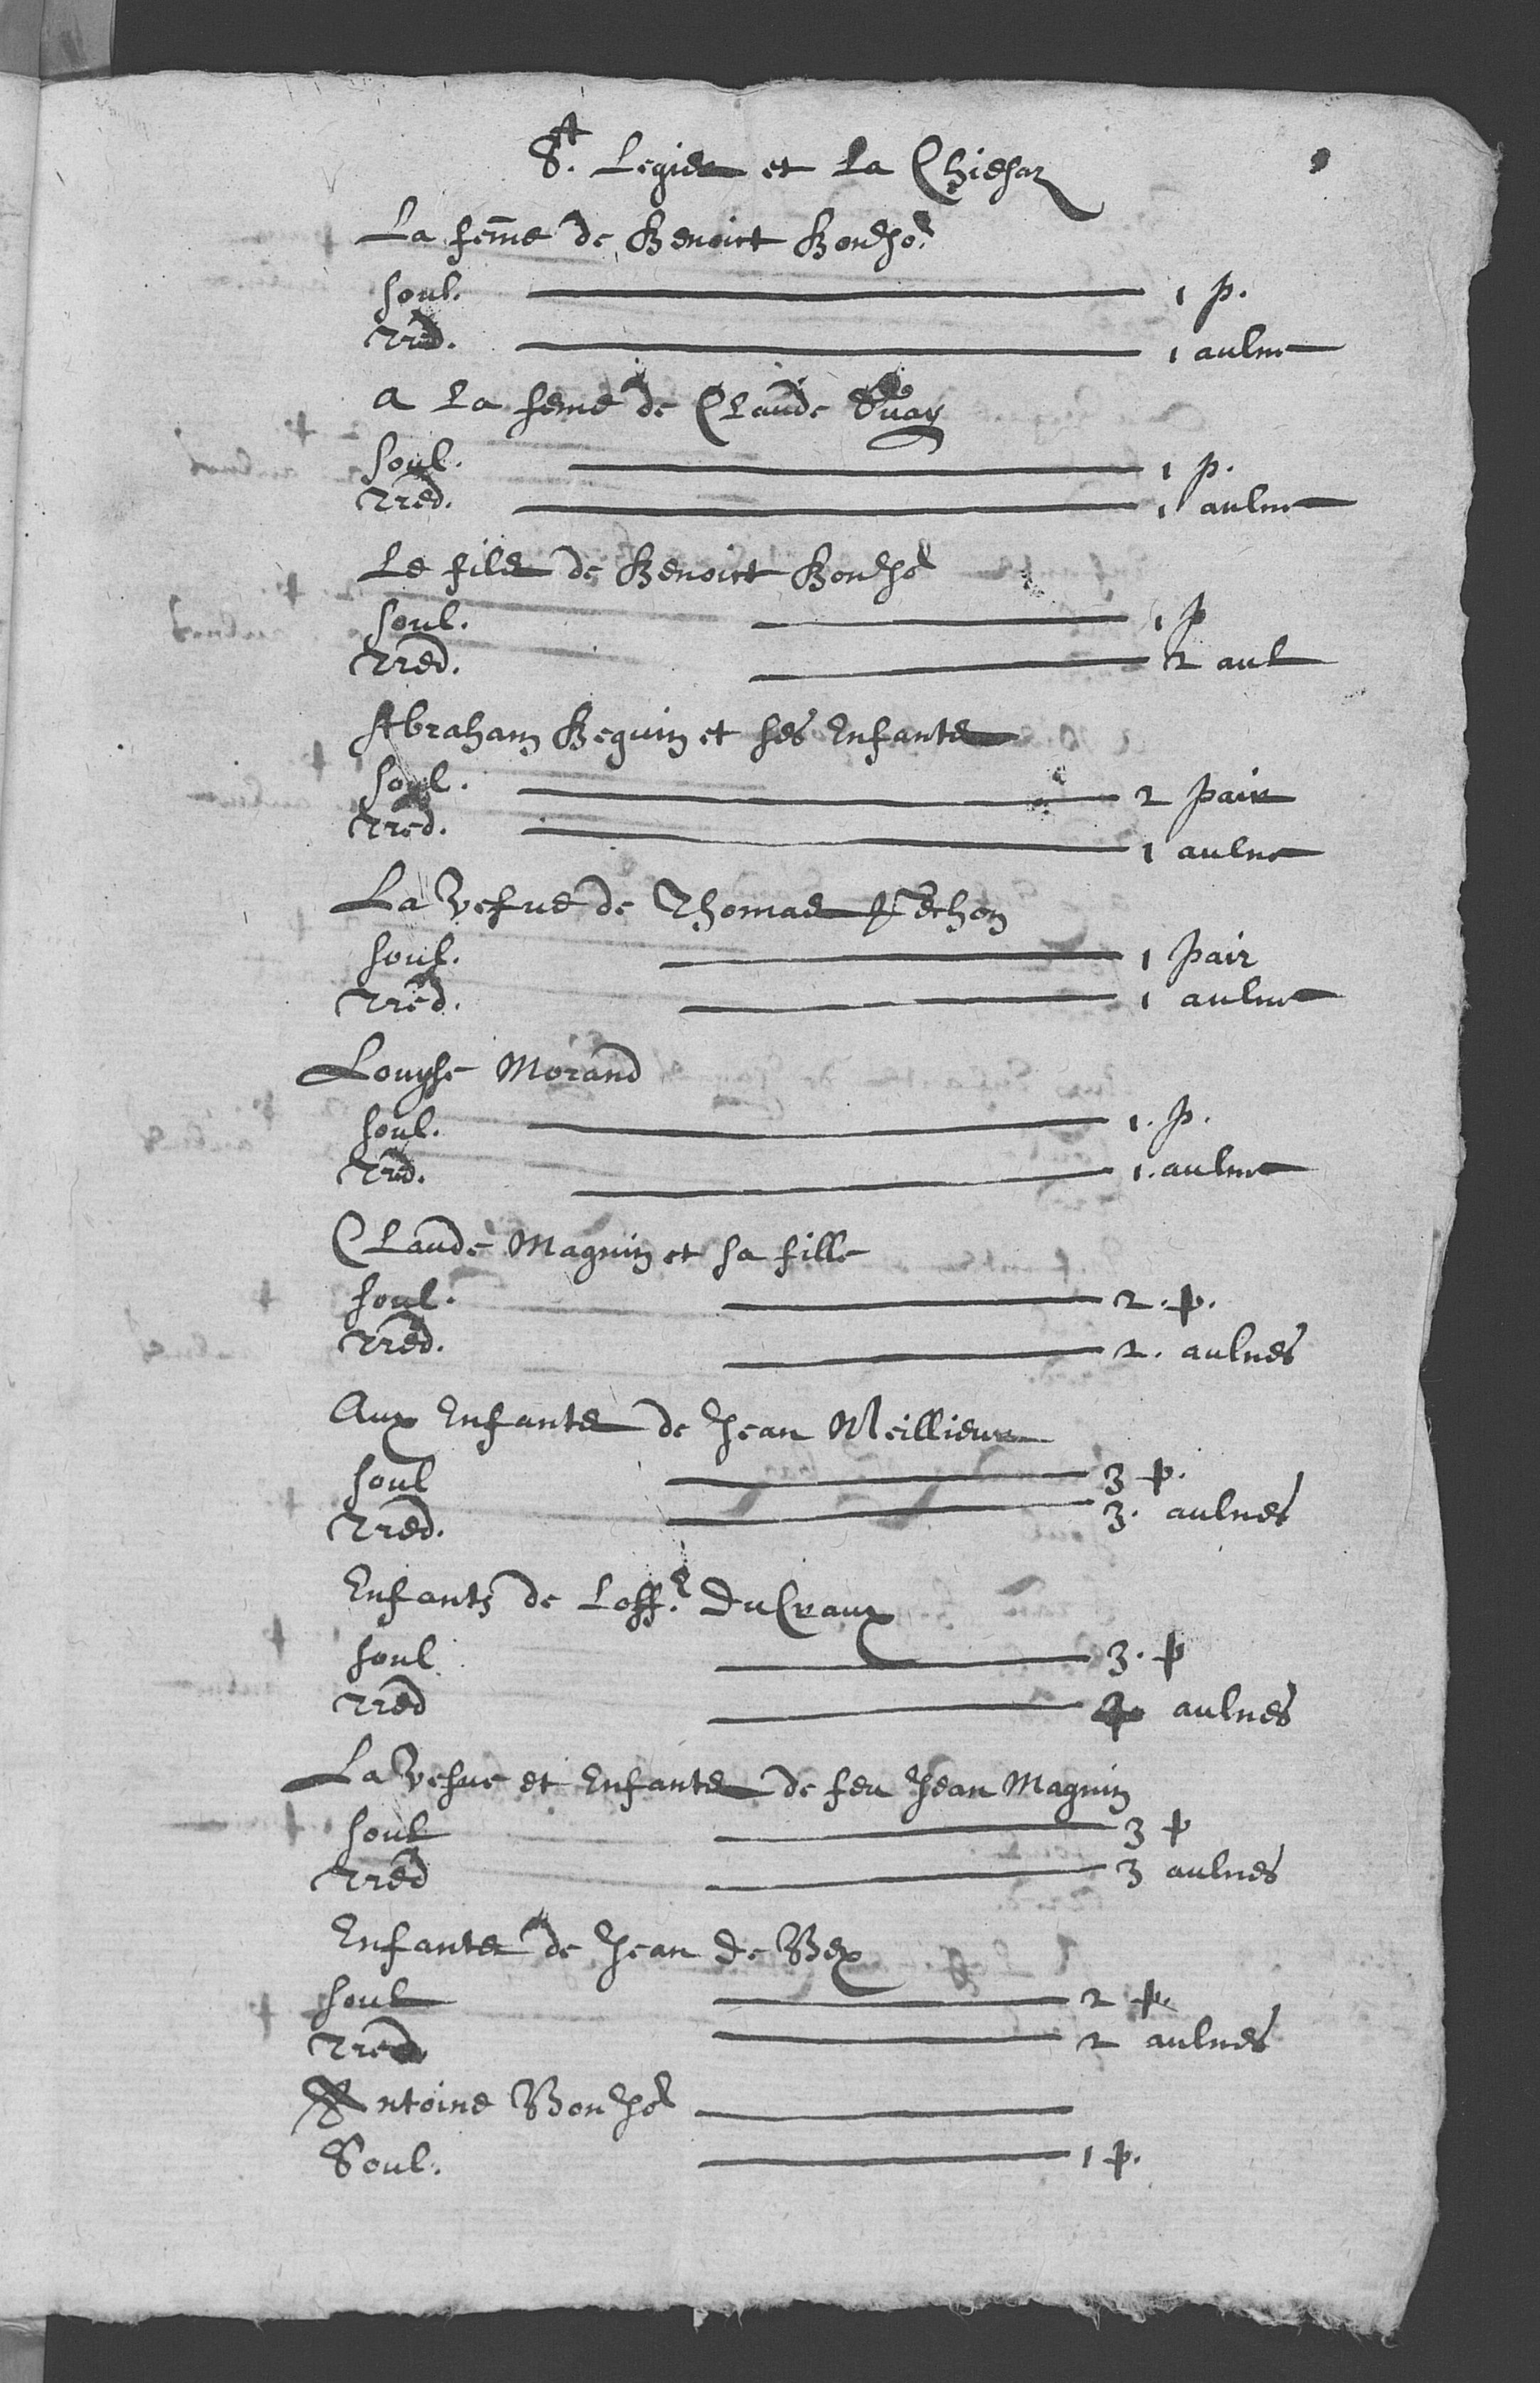 St. Legier et la Chiesaz
La feme de Benoict Bonjor
soul. 1 p.
Tred. 1 aulne
a la feme de Claude
soul. 1 p.
Tred. 1 aulne
Le filz de Benoict Bonjor
soul. 1 p
Tred. 2 aul
Abraham Beguin et ses Enfants
soul. 2 pair
Tred. 1 aulne
La vefue de Thomas
soul. 1 pair
Tred. 1 aulne
Louyse Morand
soul. 1. p.
Tred. 1. aulne
Claude Magnin et sa fille
soul. 2. p.
Tred. 2. aulnes
Aux Enfants de Jean Meillieur
soul 3 p.
Tred. 3. aulnes
Enfantz de Loffr. DuCraux
soul 3. p
Tred aulnes
La vefue et Enfants de feu Jean Magnin
soul 3 p
Tred 3 aulnes
Enfants de Jean de Bex
soul 2 p.
Tred 2 aulnes
Antoine Bonjor
Soul. 1 p.